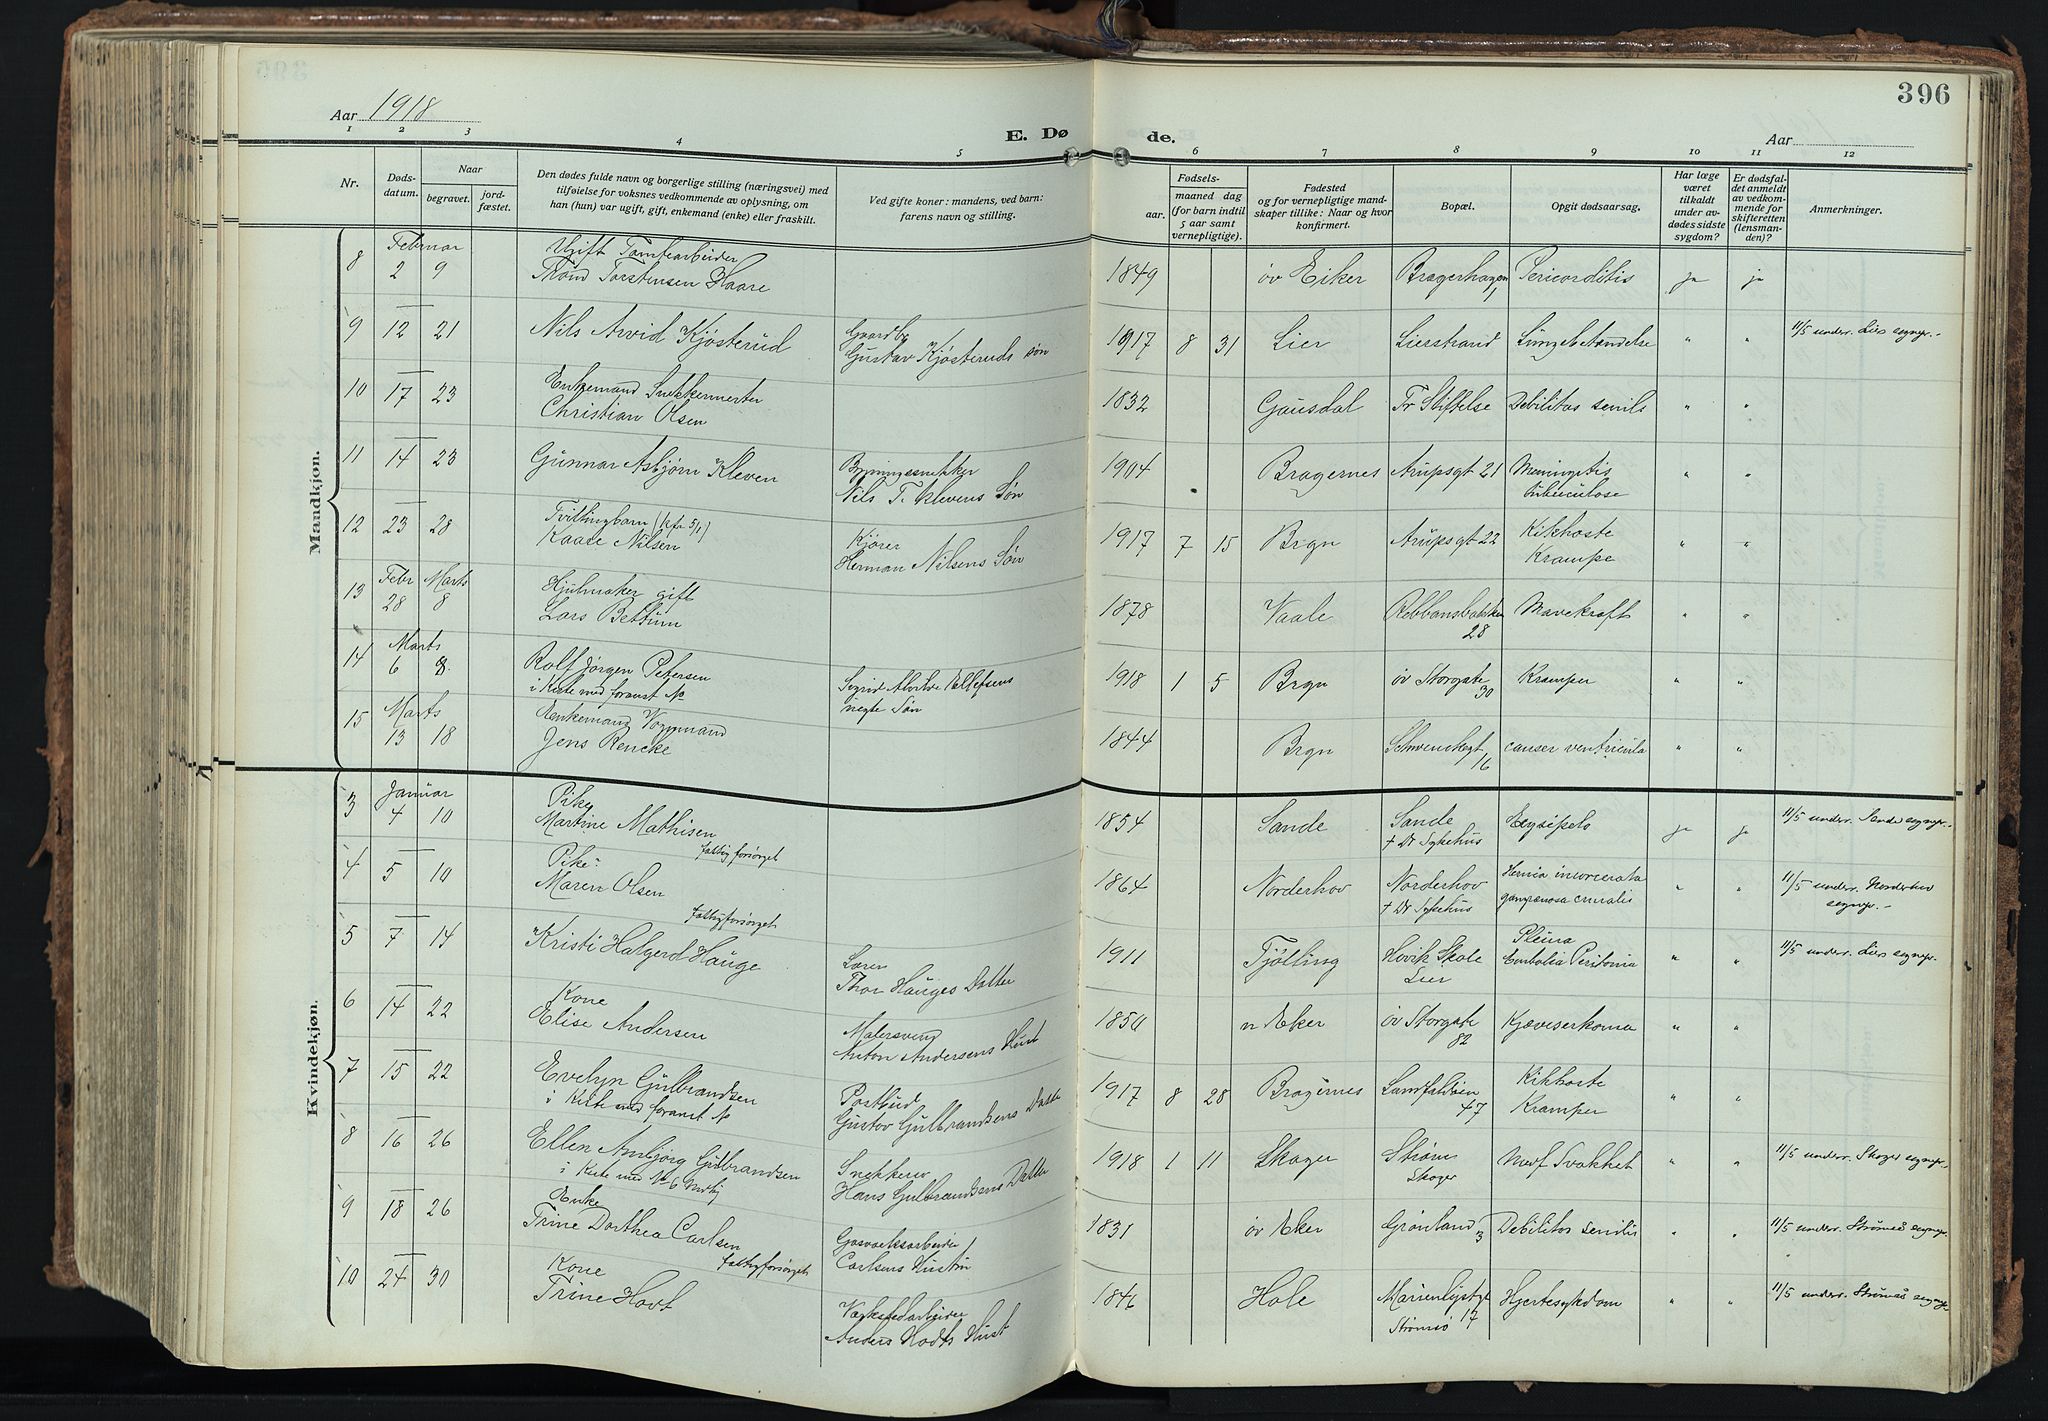 396
Aar 1918
E. Dø de.
Aar
1 2 3 4 5 6 7 8 9 10 11 12
Nr.
Døds-
datum.
Naar
begravet.
jord-
fæstet.
Den dødes fulde navn og borgerlige stilling (næringsvei) med
tilføielse for voksnes vedkommende av oplysning, om
han (hun) var ugift, gift, enkemand (enke) eller fraskilt.
Ved gifte koner: mandens, ved barn:
farens navn og stilling.
Fødsels-
aar. maaned dag
(for barn indtil
5 aar samt
vernepligtige).
Fødested
og for vernepligtige mand-
skaper tillike: Naar og hvor
konfirmert.
Bopæl.
Opgit dødsaarsag.
Har læge
været
tilkaldt
under av-
dødes sidste
sygdom?
Er dødsfal-
det anmeldt
av vedkom-
mende for
skifteretten
(lensman-
den)?
Anmerkninger.
Mandkjøn.
Februar
Ugift Tomtearbeider
8 2 9 Trond Torstensen Haare 1849 øv Eiker Bragerhagen 1 Pericorditis ja ja
9 12 21 Nils Arvid Kjøsterud Gaardbr
Gustav Kjøsteruds søn 1917 8 31 Lier Lierstrand Lungebetændelse " " 11/5 underr. Liers sognepr.-
10 17 23 Enkemand Snekkermester
Christian Olsen 1832 Gausdal Tr Stiftelse Debilitas senils " "
11 14 23 Gunnar Asbjørn Kleven Bygningssnekker
Nils T. Klevens Søn 1904 Bragernes Arupsgt 21 Meningitis
tuberculose " "
12 23 28 Tvillingbarn (kfr 5/1)
Kaare Nilsen Kjører
Herman Nilsens Søn 1917 7 15 Brgn Arupsgt 22 Kikhoste
Krampe " "
Febr Marts
13 28 8 Hjulmaker gift
Lars Bettum 1878 Vaale 28 Mavekræft " "
Marts
14 6 8 Rolf Jørgen Petersen
i Kiste med foranst No
Sigrid Ellefsens
uegte Søn 1918 1 5 Brgn øv Storgate
30 Kramper " "
Marts
15 13 18 Enkemand Vognmand
Jens Rencke 1844 Brgn Schwenckegt
16 cancer ventricula " "
Kvindekjøn.
Januar
3 4 10 Pike
Martine Mathisen
fattigforsørget 1854 Sande Sande
+ Dr Sykehus Erysipels ja ja 11/5 underr. Sande sognepr.-
4 5 10 Pike
Maren Olsen
fattigforsørget 1864 Norderhov Norderhov
+ Dr Sykehus Hernia incarcerata
gangrænosa cruralis " " 11/5 underr. Norderhov
sognepr.-
5 7 14 Kristi Halgerd Hauge Lærer
Thor Hauges Datter 1911 Tjølling Høvik Skole
Lier Pleura
Embolia Peritonia " " 11/5 underr. Liers sognepr.
6 14 22 Kone
Elise Andersen Malersvend
Anton Andersens Hust 1850 n Eker øv Storgate
82 " "
7 15 22 Evelyn Gulbrandsen
i Kiste med foranst No Postbud
Gustav Gulbrandsens Datter 1917 8 28 Bragernes Landfaldøen
47 Kikhoste
Kramper " "
8 16 26 Ellen Ambjørg Gulbrandsen
i Kiste med No 6 Snekker
Hans Gulbrandsens Datter 1918 1 11 Skoger Strøm
Skoger Medf Svakhet " " 11/5 underr. Skoger sognepr.
9 18 26 Enke
Trine Dorthea Carlsen
fattigforsørget Gasverksarbeider
Carlsens Hustru 1831 øv Eker Grønland 3 Debilitas senilis " " 11/5 underr. Strømsø sognepr.
10 24 30 Kone
Trine Hovt Verkstedarbeider
Anders Hovts Hust 1846 Hole Marienlystgt
17
Strømsø Hjertesykdom " " 11/5 underr. Strømsø sognepr.